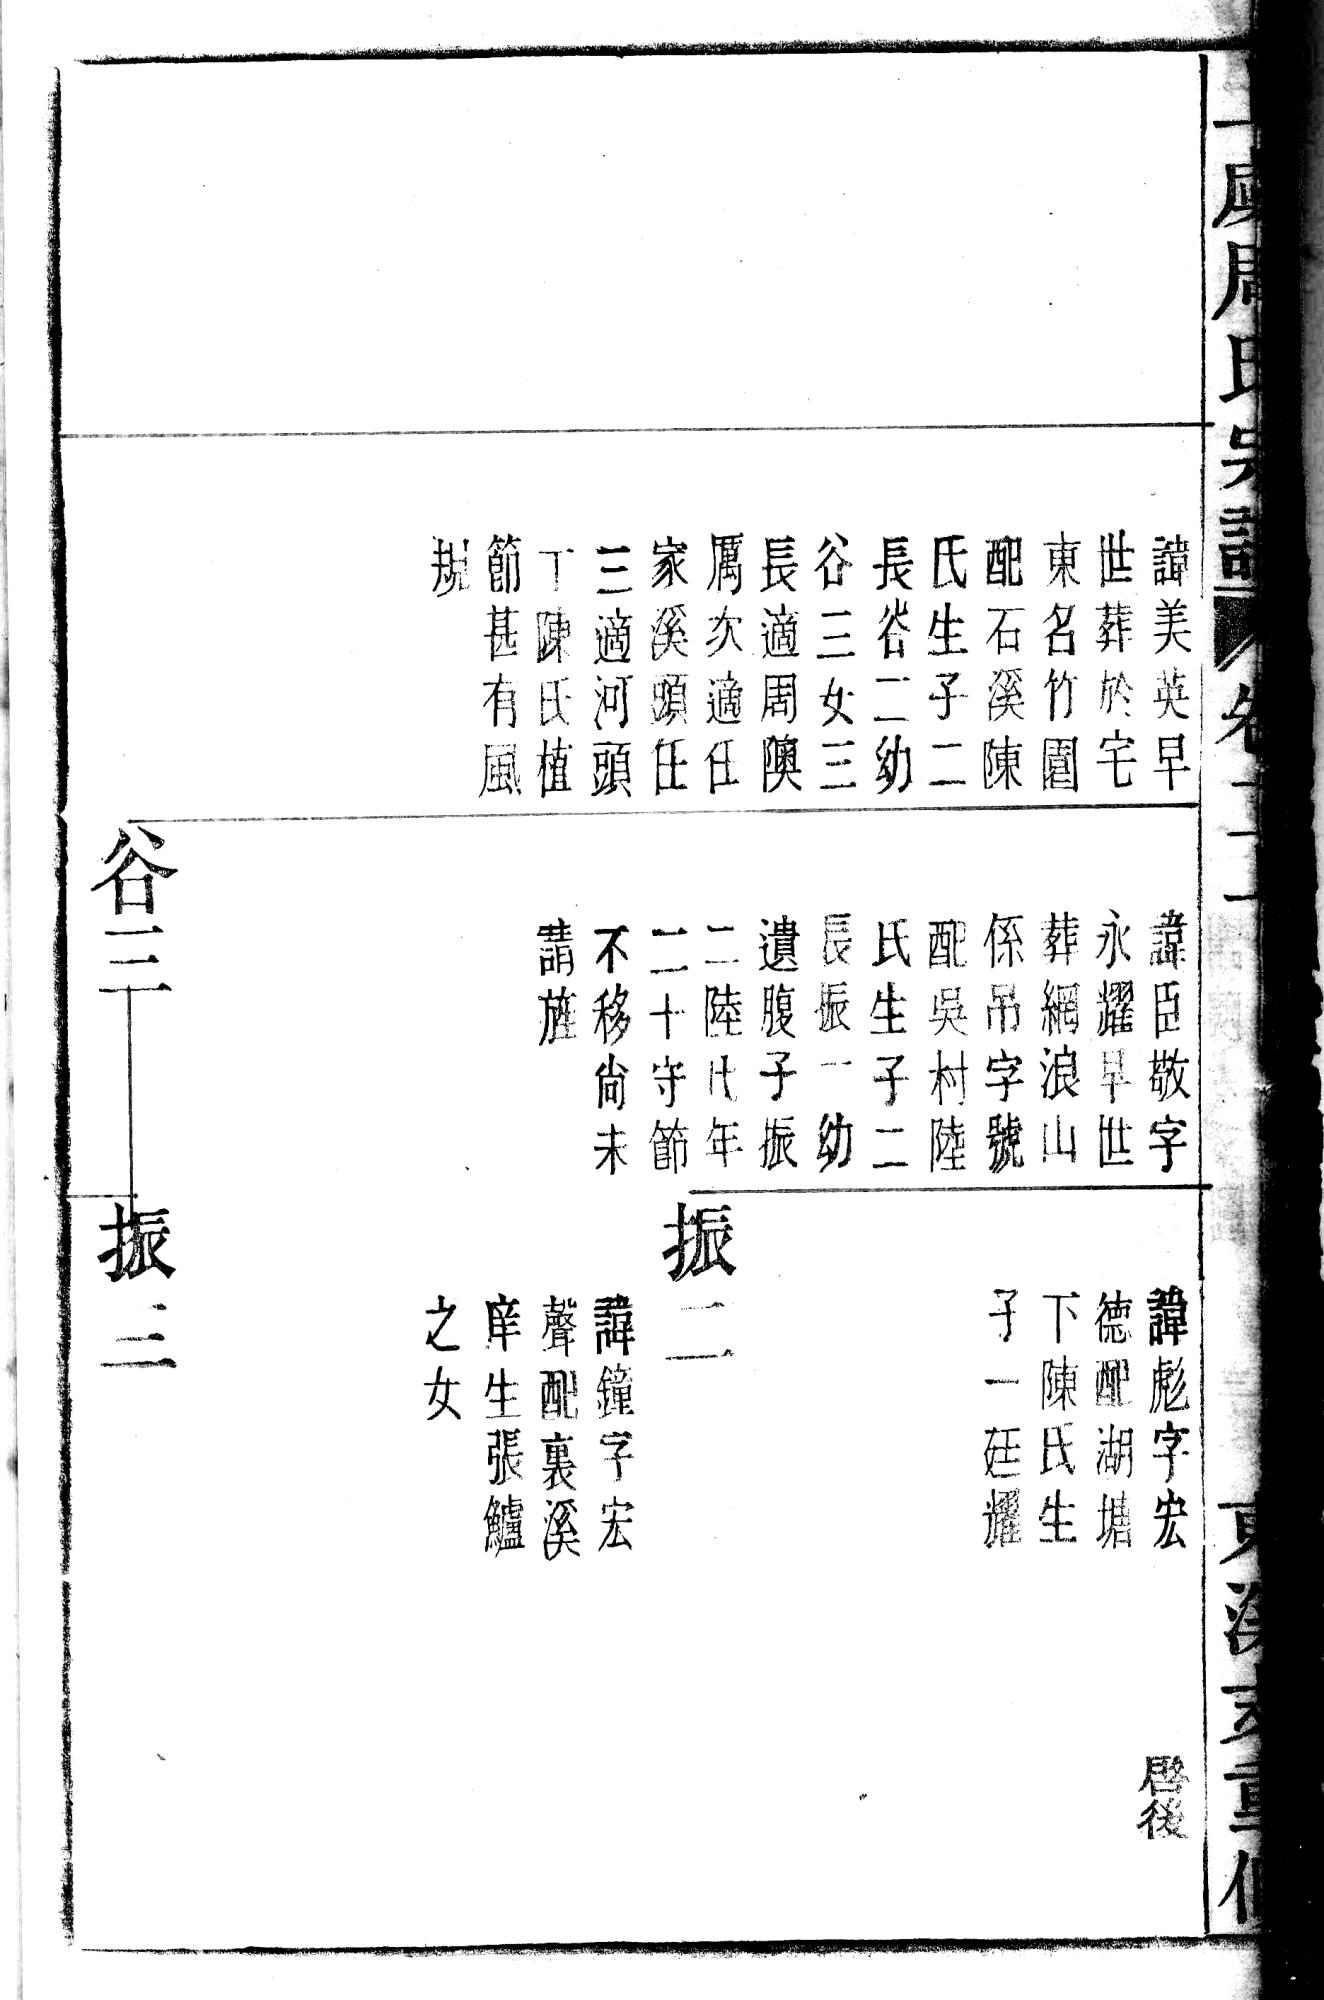 周氏宗譜
卷
諱美英早
世葬於宅
東名竹園
配石溪陳
氏生子二
長谷二幼
谷三女三
長適周隩
厲次適任
家溪頭任
三適河頭
丁陳氏植
節甚有風
規
諱臣敬字
永耀早世
葬網浪山
係吊字號
配吳村陸
氏生子二
長振一幼
遺腹子振
二陸氏年
二十守節
不移尙未
請旌
谷三
諱彪字宏
德配湖塘
下陳氏生
子一廷耀
振二
諱鐘字宏
聲配裏溪
庠生張鱸
之女
振三
啓後